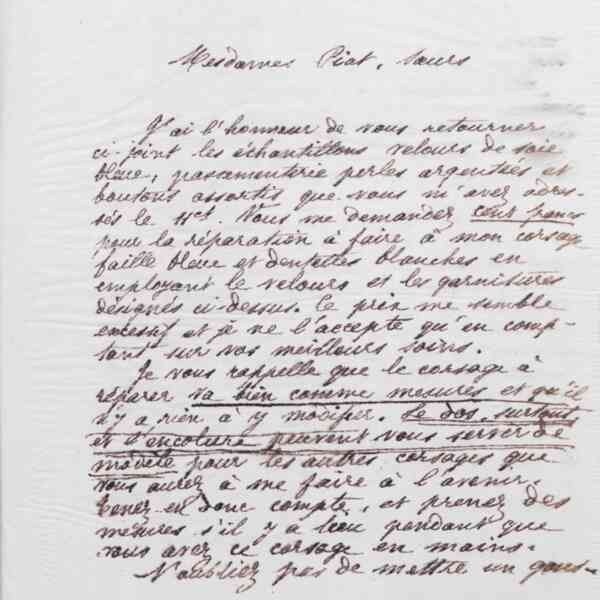 Mesdames Piat, Sœurs
J'ai l'honneur de vous retourner
ci-joint les échantillons velours de soie
bleue, passementerie perles argentées et
boutons assortis que vous m'avez adres-
sés le 11 ct. Vous me demandez cent francs
pour la réparation à faire à mon corsage
faille bleue et dentelles blanches en
employant le velours et les garnitures
désignés ci-dessus. Ce prix me semble
excessif et je ne l'accepte qu'en comp-
tant sur vos meilleurs soins.
Je vous rappelle que le corsage à
réparer va bien comme mesures et qu'il
n'y a rien à y modifier. Le dos, surtout
et l'encolure peuvent vous servir de
modèle pour les autres corsages que
vous aurez à me faire à l'avenir.
Tenez en donc compte, et prenez des
mesures s'il y a lieu pendant que
vous avez ce corsage en mains.
N'oubliez pas de mettre un gous-